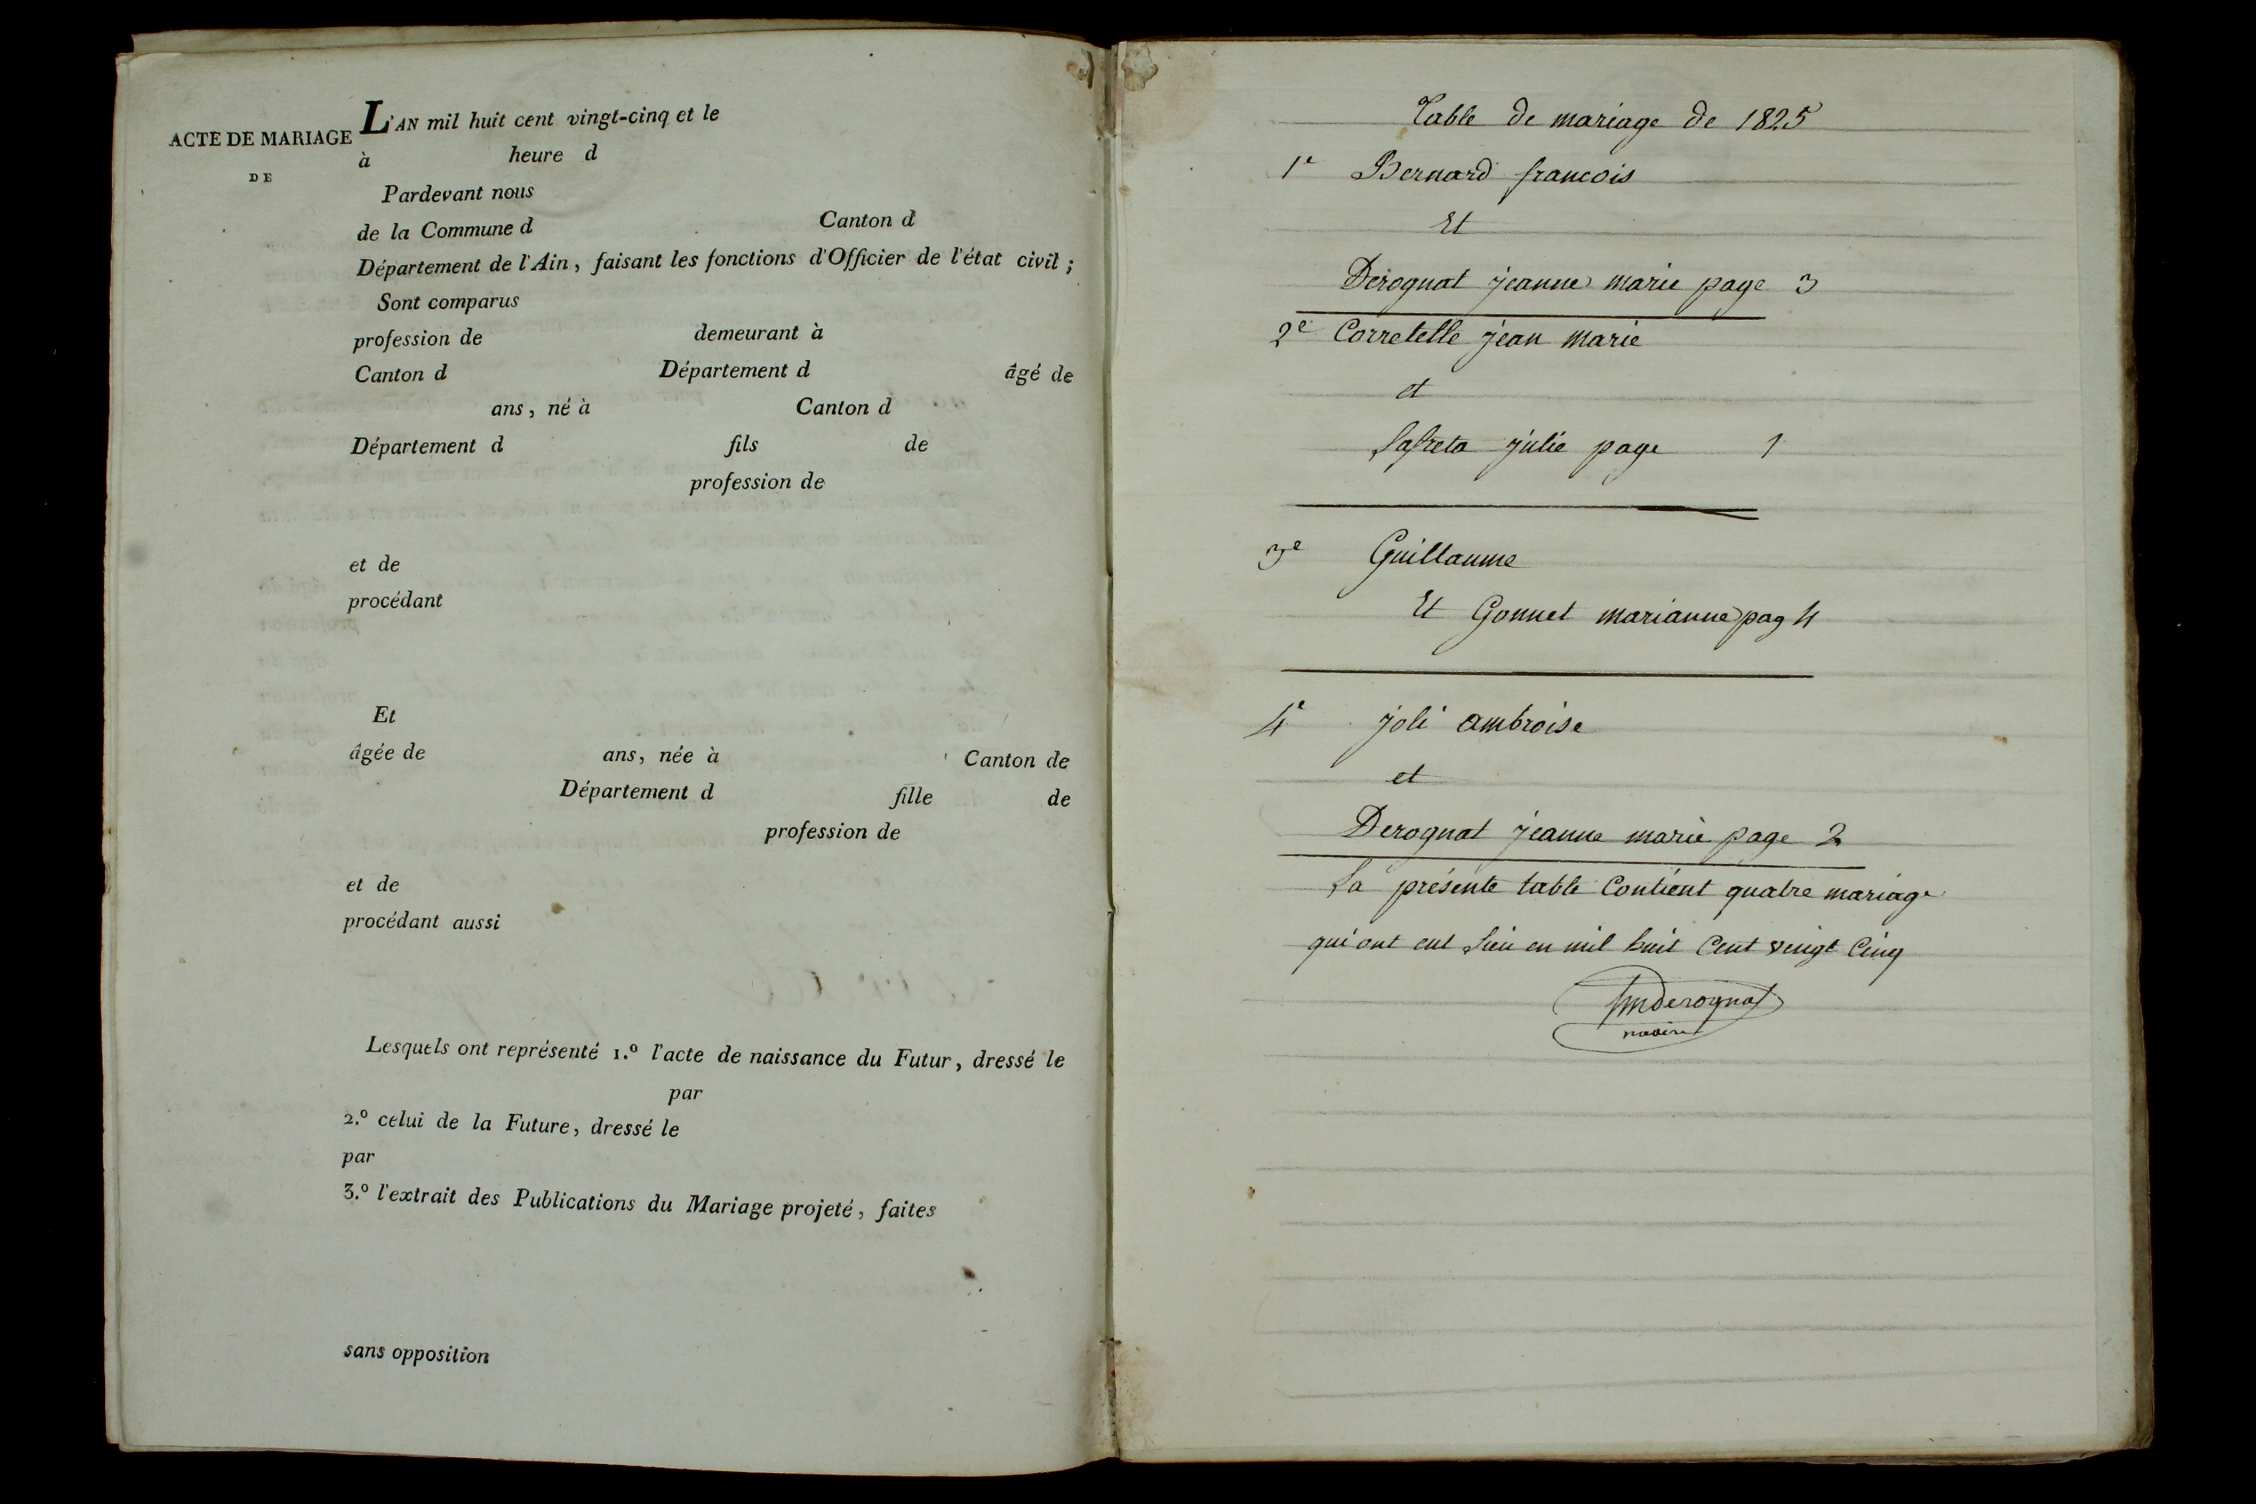 ACTE DE MARIAGE
DE
L'AN mil huit cent vingt-cinq et le
à heure d
Pardevant nous
de la Commune d Canton d
Département de l'Ain, faisant les fonctions d'Officier de l'état civil;
Sont comparus
profession de demeurant à
Canton d Département d âgé de
ans, né à Canton d
Département d fils de
profession de
et de
procédant
Et
âgée de ans, née à Canton de
Département d fille de
profession de
et de
procédant aussi
Lesquels ont représenté 1.º l'acte de naissance du Futur, dressé le
par
2.º celui de la Future, dressé le
par
3.º l'extrait des Publications du Mariage projeté, faites
sans opposition
Table de mariage de 1825
1e Bernard francois
Et
Derognat jeanne marie page 3
2e Corretelle jean marie
et
julie page 1
3e Guillaume
Et Gonnet marianne pag 4
4e joli ambroise
et
Derognat jeanne marie page 2
la présente table Contient quatre mariage
qui ont eut lieu en mil huit Cent veingt Cinq
derognat